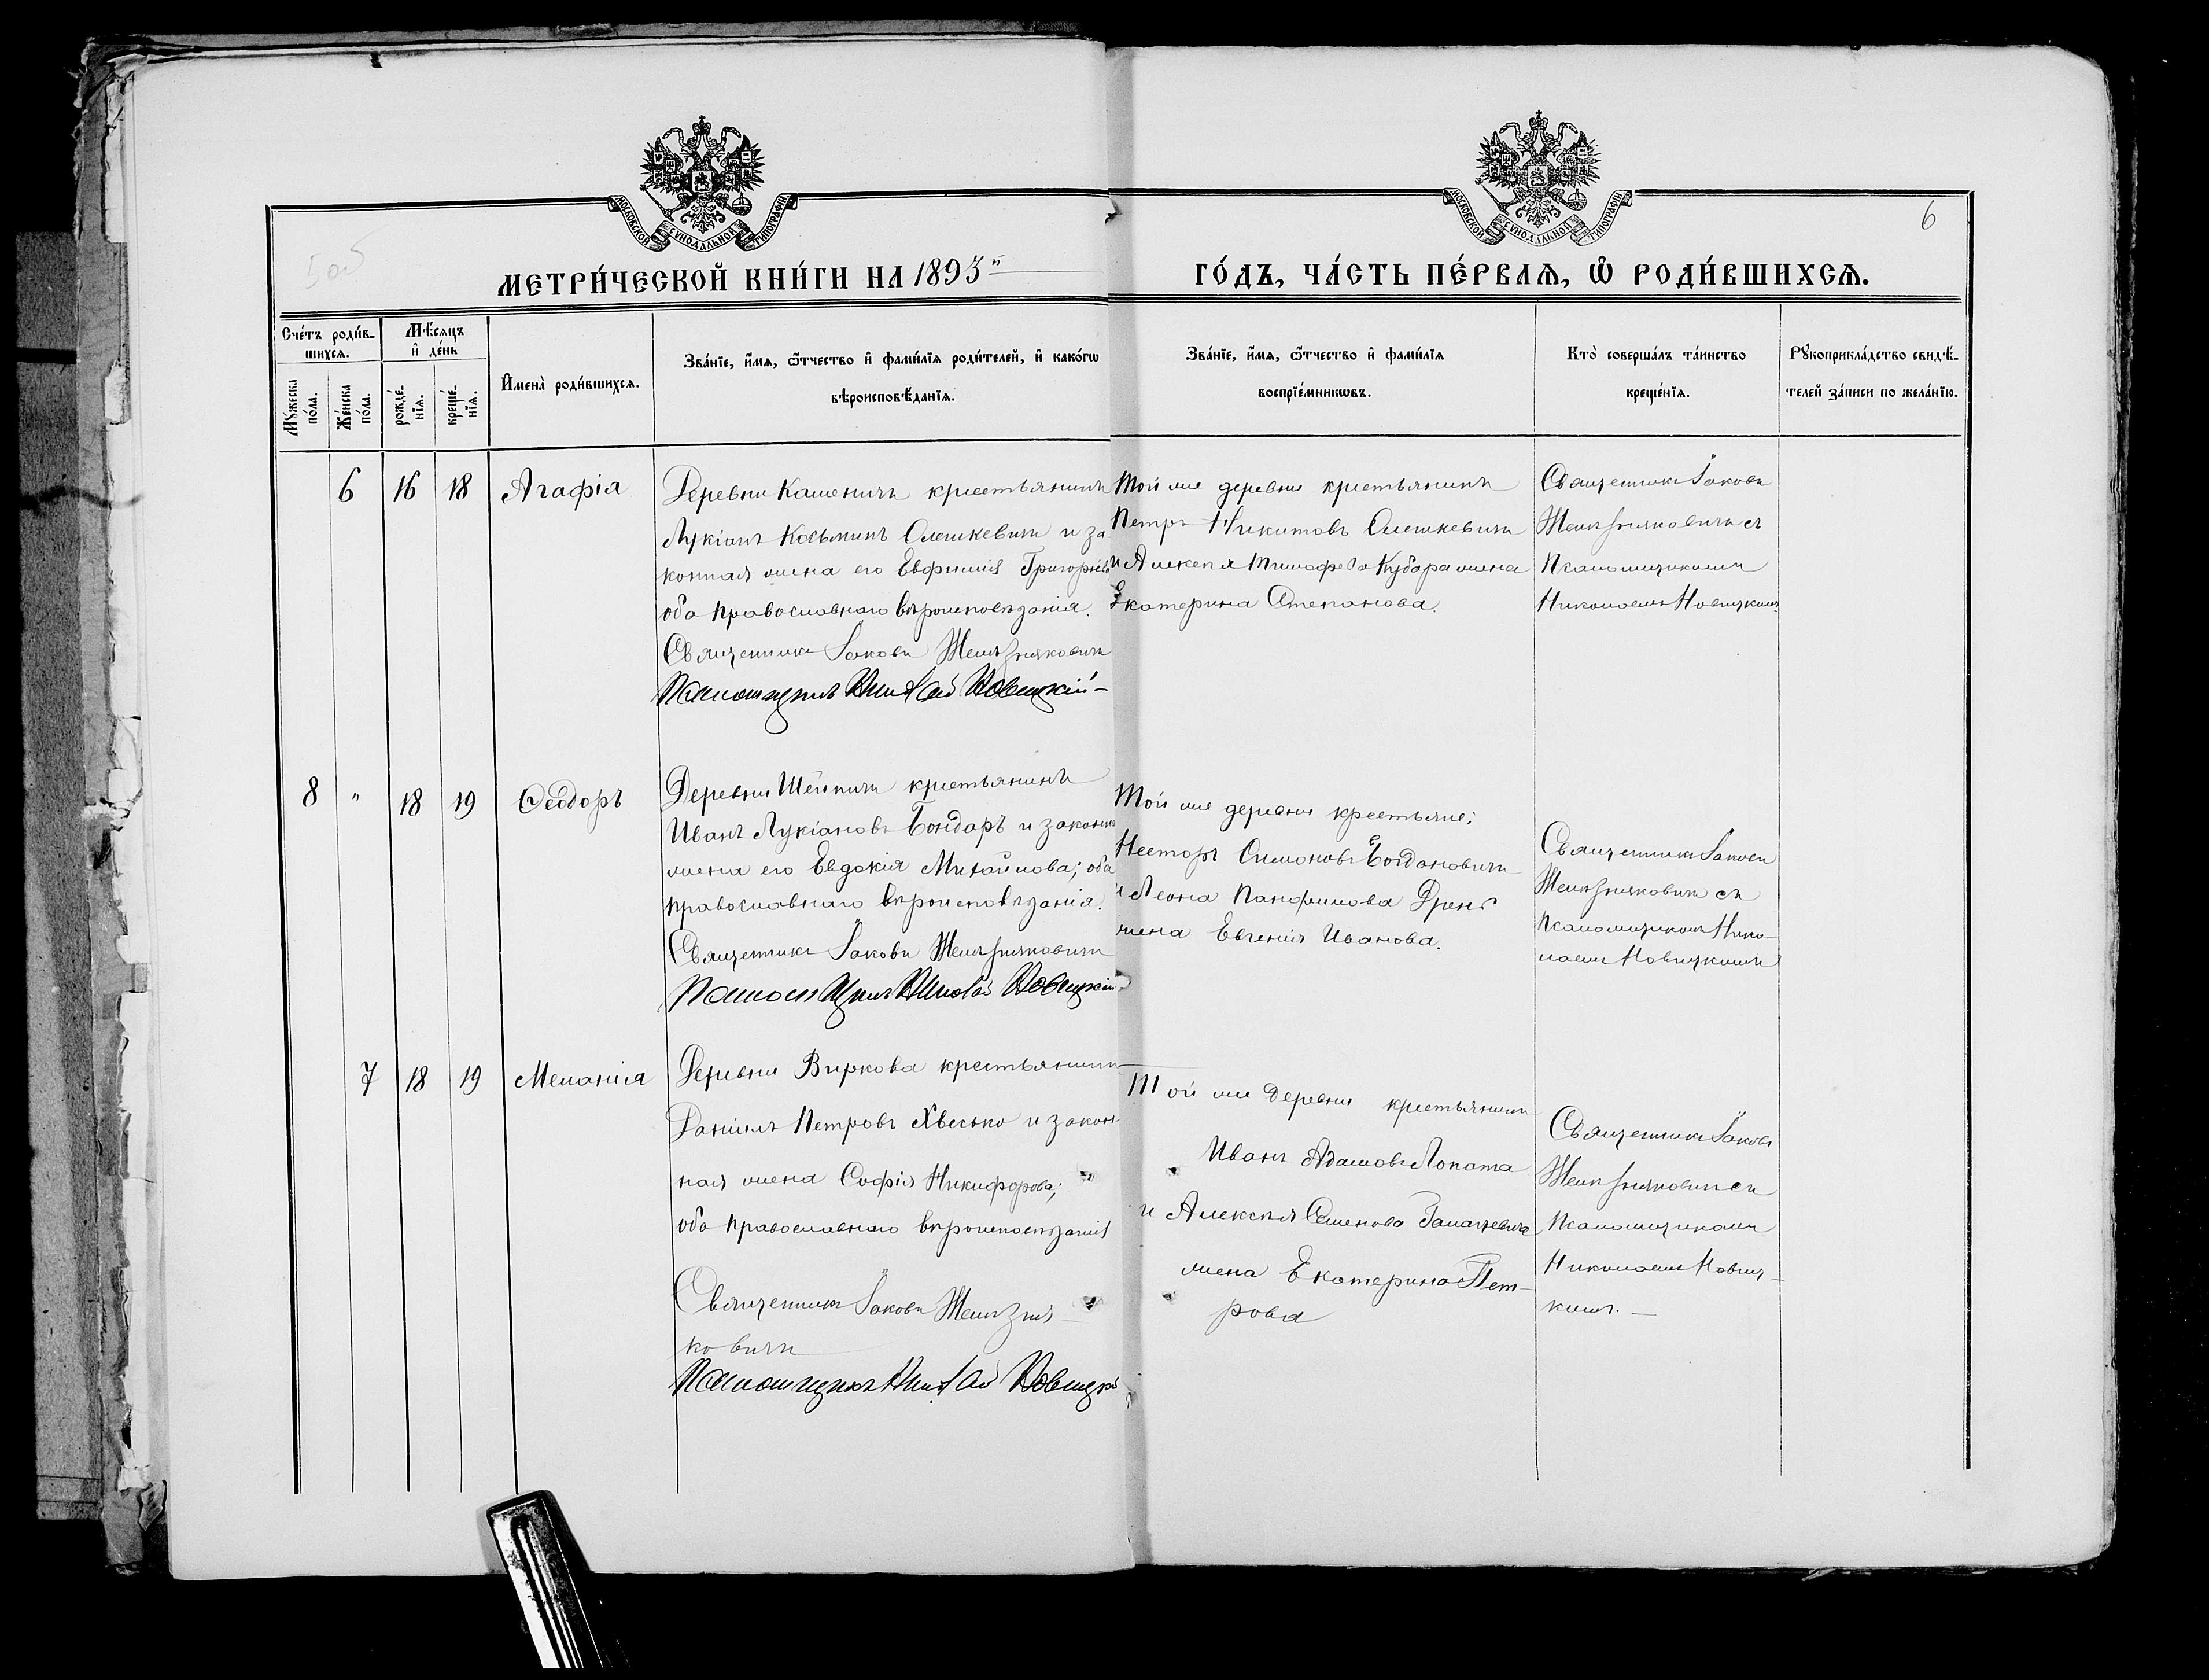 МОСКОВСКОЙ СѴНОДАЛЬНОЙ ТИПОГРАФІИ
МОСКОВСКОЙ СѴНОДАЛЬНОЙ ТИПОГРАФІИ
6
МЕТРИ́ЧЕСКОЙ КНИ́ГИ НА 1893й
ГО́ДЪ, ЧА́СТЬ ПЕ́РВАѦ, Ѡ РОДИ́ВШИХСѦ.
Сче́тъ роди́в-
шихсѧ.
Мѣ́сѧцъ
и де́нь
Мꙋ́жеска по́ла.
Же́нска по́ла.
рожде́-нїѧ.
креще́-нїѧ.
И҆мена̀ роди́вшихсѧ.
Зва́нїе, и҆́мѧ, ѻ҆́тчество и҆ фами́лїѧ роди́телей, и҆ како́гѡ
вѣроисповѣ́данїѧ.
Зва́нїе, и҆́мѧ, ѻ҆́тчество и҆ фами́лїѧ
воспрїе́мникѡвъ.
Кто̀ соверша́лъ та́инство
креще́нїѧ.
Рꙋкоприкла́дство свидѣ́-
телей за́писи по жела́нїю.
6 16 18 Агафія
Деревни Каменичъ крестьянинъ
Лукіанъ Косьминъ Олешкевичъ и за-
конная жена его Евфимія Григорьева
оба православнаго вѣроисповѣданія.
Священникъ Іаковъ Желѣзняковичъ
Псаломщикъ Николай Новицкій
Той же деревни крестьянинъ
Петръ Никитовъ Олешкевичъ
и Алексѣя Тимофеева Кубара жена
Екатерина Степанова.
Священникъ Іаковъ
Желѣзняковичъ съ
Псаломщикомъ
Николаемъ Новицкимъ
8 " 18 19 Ѳеодоръ
Деревни крестьянинъ
Иванъ Лукіановъ Бондаръ и законная
жена его Евдокія Михайлова; оба
православнаго вѣроисповѣданія.
Священникъ Іаковъ Желѣзняковичъ
Псаломщикъ Николай Новицкій
Той же деревни крестьяне:
Несторъ Симоновъ Богдановичъ
и Леона Панфилова
жена Евгенія Иванова.
Священникъ Іаковъ
Желѣзняковичъ съ
Псаломщикомъ Нико-
лаемъ Новицкимъ
7 18 19 Меланія
Деревни Виркова крестьянинъ
Даніилъ Петровъ Хвесько и закон-
ная жена Софія Никифорова;
оба православнаго вѣроисповѣданія
Священникъ Іаковъ Желѣзня-
ковичъ
Псаломщикъ Николай Новицкій
Той же деревни крестьянинъ
Иванъ Адамовъ Лопата
и Алексѣя Семенова
жена Екатерина Пет-
рова
Священникъ Іаковъ
Желѣзняковичъ съ
Псаломщикомъ
Николаемъ Новиц-
кимъ.